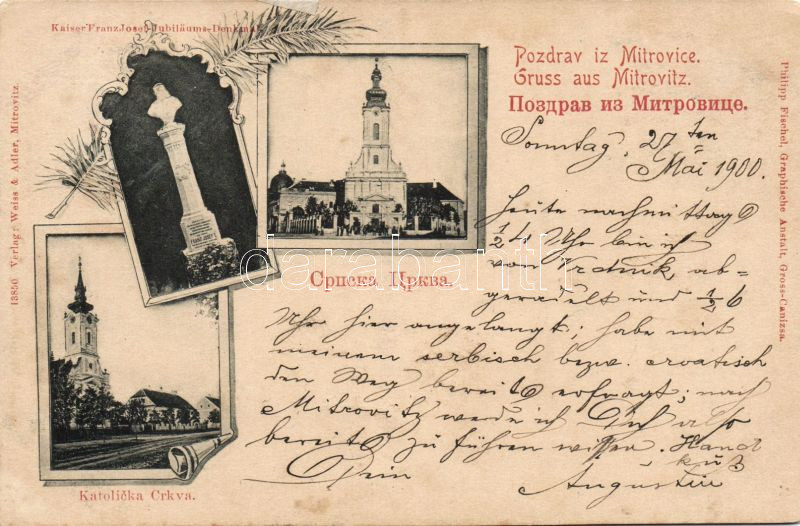 Kaiser Franz Josef-Jubiläums-Denkmal
Pozdrav iz Mitrovice.
Gruss aus Mitrovitz.
Поздрав из Митровице.
Sonntag, 27ten
Mai 1900.
Heute nachmittag
1/2 4 Uhr bin ich
von Vrdnik, ab-
geradelt und 1/2 6
Uhr hier angelangt; habe mit
meinem serbisch bezw. croatisch
den Weg bereits erfragt; nach
Mitrovitz werde ich Dich also
bereits zu führen wissen. Hand
kuß
Dein
Augustin
Српска Црква.
Katolička Crkva.
13850 Verlag: Weiss & Adler, Mitrovitz.
Philipp Fischel, Graphische Anstalt, Gross-Canizsa.
darabanth